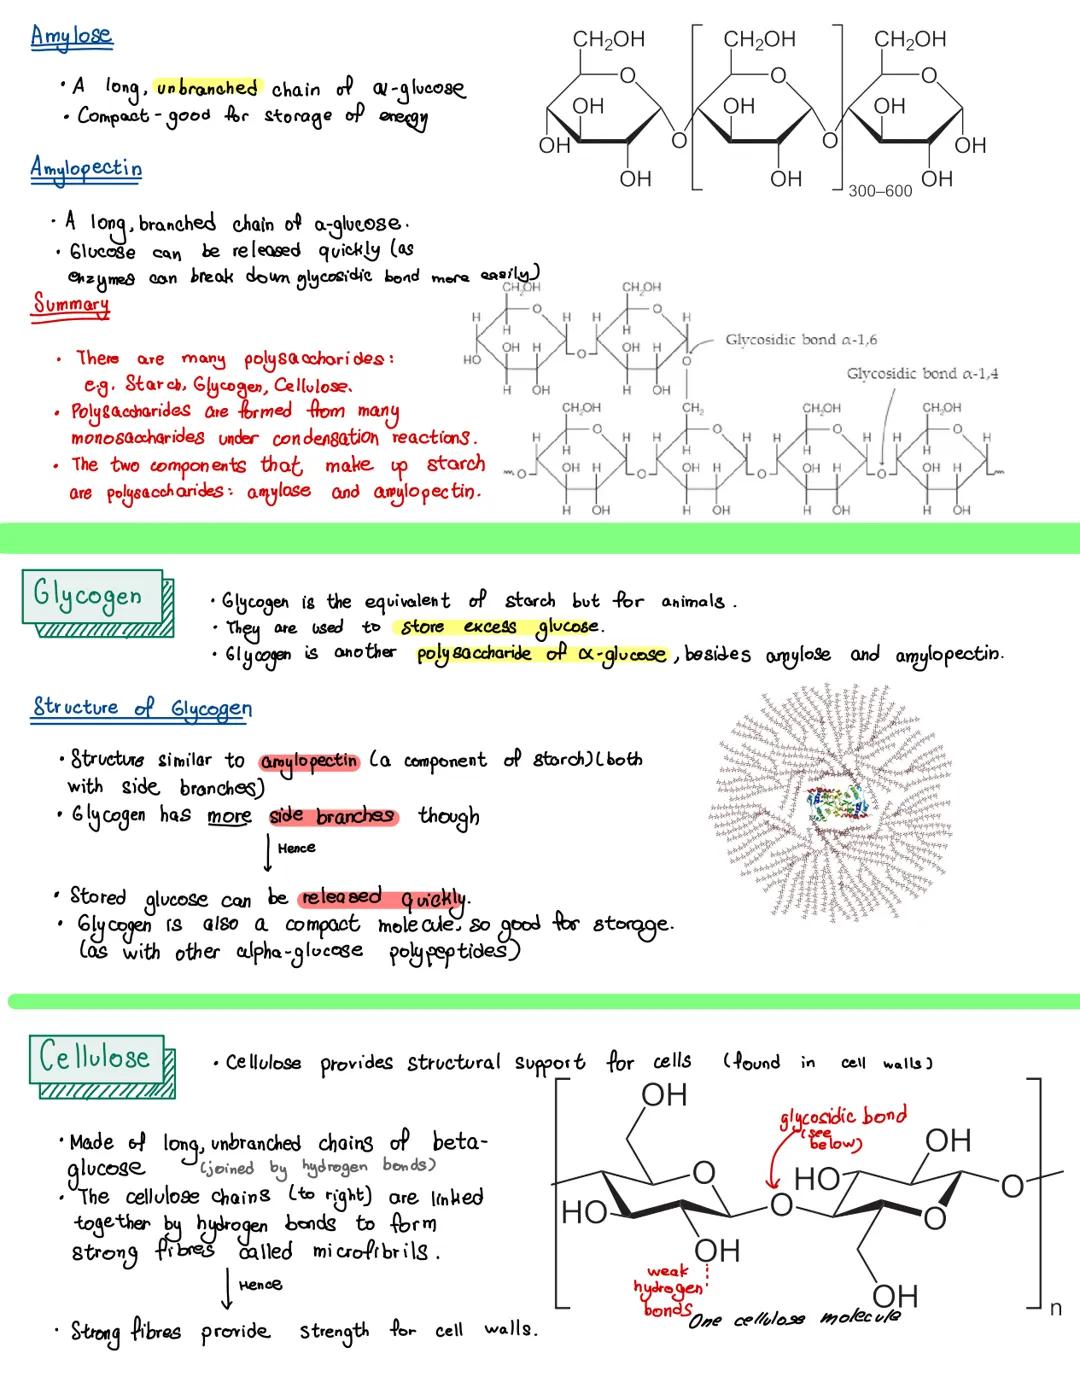 Amylose
• A long, unbranched chain of α-glucose
• Compact - good for storage of energy
CH₂OH CH₂OH CH₂OH
O O O
OH OH OH
OH O O OH
OH OH OH
300–600
Amylopectin
• A long, branched chain of α-glucose.
• Glucose can be released quickly (as
enzymes can break down glycosidic bond more easily)
Summary
• There are many polysaccharides:
e.g. Starch, Glycogen, Cellulose.
• Polysaccharides are formed from many
monosaccharides under condensation reactions.
• The two components that make up starch
are polysaccharides: amylose and amylopectin.
CH₂OH CH₂OH
O O
H H H H
H H
OH H OH H
HO O O
H OH H OH
Glycosidic bond α-1,6
Glycosidic bond α-1,4
CH₂OH CH₂ CH₂OH CH₂OH
O O O O
H H H H H H H H
H H H H
OH H OH H OH H OH H
O O O O
H OH H OH H OH H OH
Glycogen
• Glycogen is the equivalent of starch but for animals.
• They are used to store excess glucose.
• Glycogen is another polysaccharide of α-glucose, besides amylose and amylopectin.
Structure of Glycogen
• Structure similar to amylopectin (a component of starch)(both
with side branches)
• Glycogen has more side branches though
Hence
• Stored glucose can be released quickly.
• Glycogen is also a compact molecule, so good for storage.
(as with other alpha-glucose polypeptides)
Cellulose
• Cellulose provides structural support for cells (found in cell walls)
• Made of long, unbranched chains of beta-
glucose (joined by hydrogen bonds)
• The cellulose chains (to right) are linked
together by hydrogen bonds to form
strong fibres called microfibrils.
Hence
• Strong fibres provide strength for cell walls.
OH
glycosidic bond
(see
below)
OH
O HO O
HO O O
OH
weak
hydrogen
bonds
OH
n
One cellulose molecule